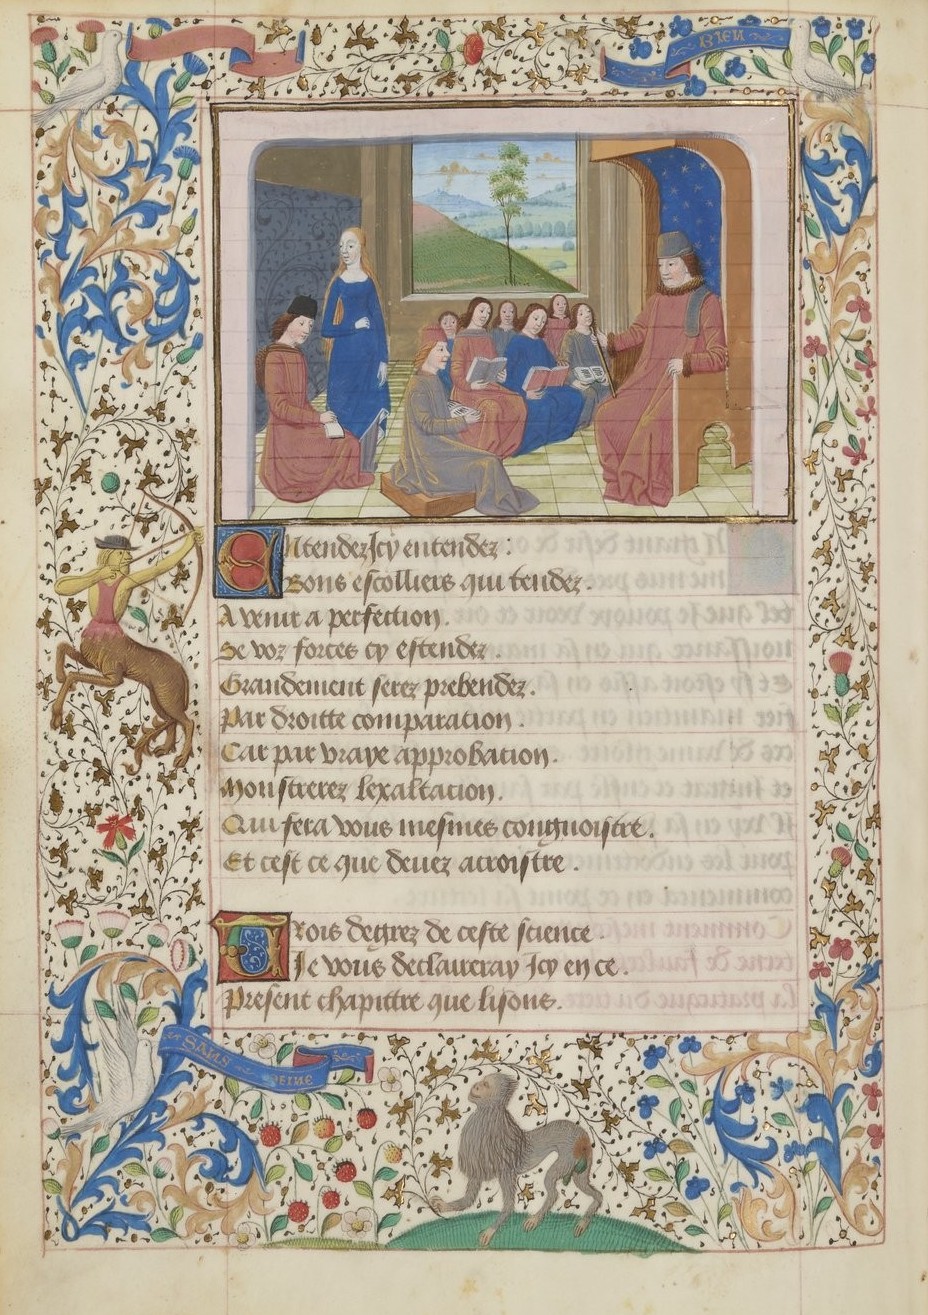 BIEN
Entendez Icy entendez :
Bons escolliers qui tendez .
A venir a perfection .
Se voz forces cy estendez .
Grandement serez prebendez .
Par droitte comparation .
Car par vraye approbation .
Monstrerez lexaltation .
Qui fera vous mesmes congnoistre .
Et cest ce que devez accroistre .
Trois degrez de ceste science .
Je vous declaireray Icy en ce .
Present chapittre que lisons .
SANS
PEINE